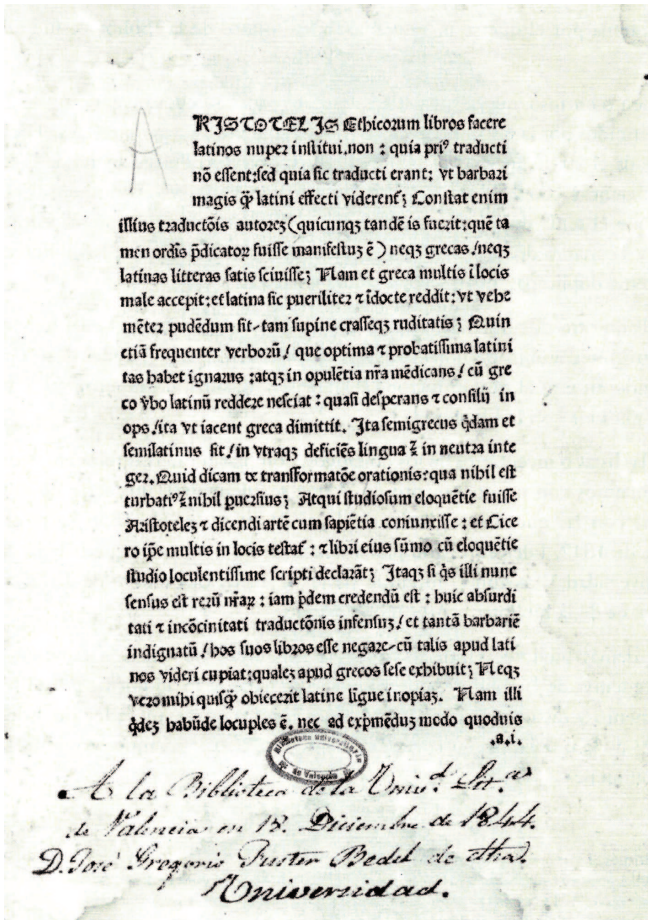 A
RISTOTELIS Ethicorum libros facere
latinos nuper institui. non : quia priꝰ traducti
nō essent: sed quia sic traducti erant: vt barbari
magis q̃ȝ latini effecti viderent̃ȝ Constat enim
illius traductōis autoreȝ (quicunqȝ tandē is fuerit: quē ta
men ordīs p̄dicatoꝝ fuisse manifestuȝ ē) neqȝ grecas / neqȝ
latinas litteras satis sciuisseȝ Nam et greca multis ī locis
male accepit: et latina sic pueriliter ⁊ īdocte reddit: vt vehe
mēter pudēdum sit tam supine crasseqȝ ruditatisȝ Quin
etiā frequenter verborū / que optima ⁊ probatissima latini
tas habet ignarus : atqȝ in opulētia nr̄a mēdicans / cū gre
co v̄bo latinū reddere nesciat : quasi desperans ⁊ consilij in
ops / ita vt iacent greca dimittit. Ita semigrecus q̇dam et
semilatinus fit / in vtraqȝ deficiēs lingua ⁊ in neutra inte
ger. Quid dicam de transformatōe orationis: qua nihil est
turbatiꝰ ⁊ nihil ꝑuersiusȝ Atqui studiosum eloquētie fuisse
Aristoteleȝ ⁊ dicendi artē cum sapiētia coniunxisse : et Cice
ro ip̄e multis in locis testat̃ : ⁊ libri eius sūmo cū eloquētie
studio loculentissime scripti declarāt̄ȝ Itaqȝ si q̇s illi nunc
sensus est rerū nr̄aꝝ : iam p̄dem credendū est : huic absurdi
tati ⁊ incōcinitati traductōnis infensuȝ / et tantā barbariē
indignatū / hos suos libros esse negare cū talis apud lati
nos videri cupiat: qualeȝ apud grecos sese exhibuitȝ Neqȝ
vero mihi quisq̃ȝ obiecerit latine līgue inopiaȝ. Nam illi
q̇deȝ habūde locuples ē. nec ad exp̄mēduȝ modo quoduis
.a.i.
Biblioteca Universitaria de Valencia
A la Biblioteca de la Univ.d Litt.a
de Valencia en 18. Diciembre de 1844.
D. José Gregorio Fuster Bedel de dha.
Universidad.